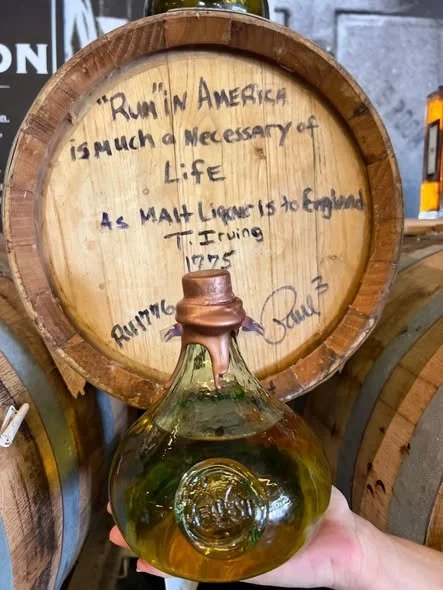 ON
"Rum" in America
is Much a Necessary of
Life
As Malt Liquor is to England
T. Irving
1775
RH1776